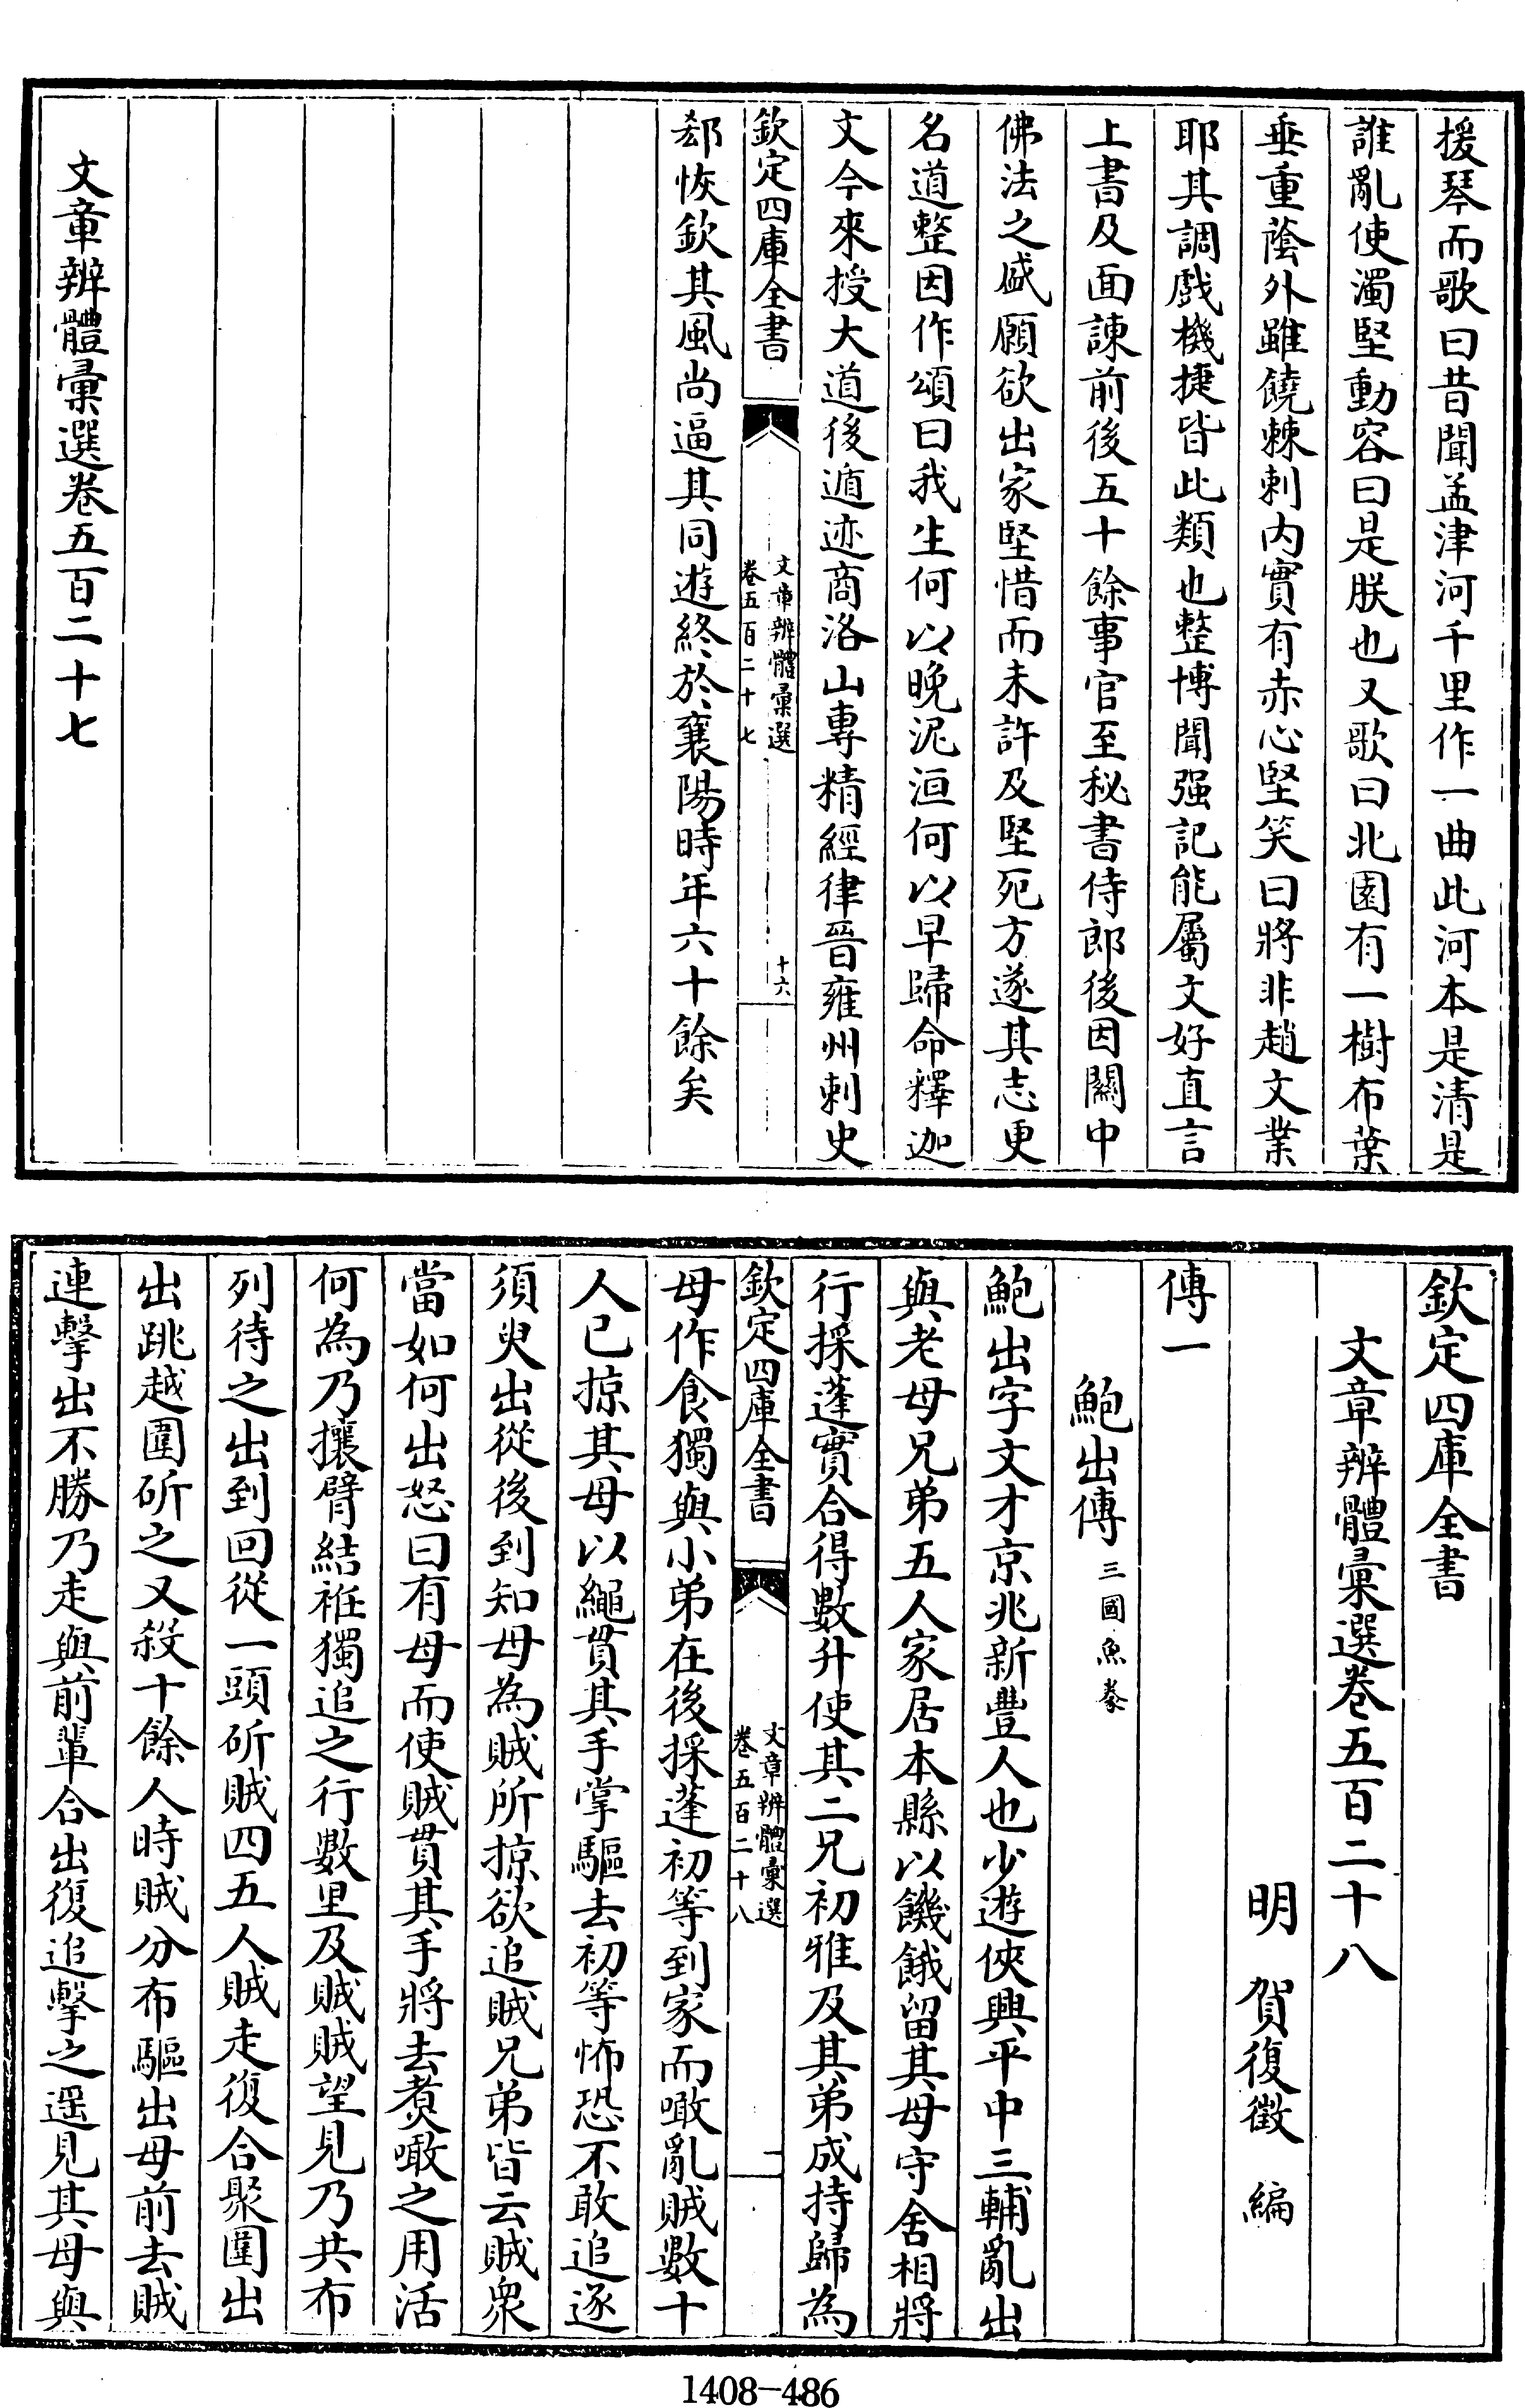 援琴而歌曰昔聞孟津河千里作一曲此河本是清是
誰亂使濁堅動容曰是朕也又歌曰北園有一樹布葉
垂重蔭外雖饒棘刺内實有赤心堅笑曰將非趙文業
耶其調戲機捷皆此類也整博聞强記能屬文好直言
上書及面諫前後五十餘事官至秘書侍郎後因關中
佛法之盛願欲出家堅惜而未許及堅死方遂其志更
名道整因作頌曰我生何以晚泥洹何以早歸命釋迦
文今來授大道後遁迹商洛山專精經律晉雍州刺史
欽定四庫全書
文章辨體彙選
卷五百二十七
十六
郄恢欽其風尚逼其同遊終於襄陽時年六十餘矣
文章辨體彙選卷五百二十七
欽定四庫全書
文章辨體彙選卷五百二十八
明 賀復徵 編
傳一
鮑出傳三國魚豢
鮑出字文才京兆新豐人也少遊俠興平中三輔亂出
與老母兄弟五人家居本縣以饑餓留其母守舍相將
行採蓬實合得數升使其二兄初雅及其弟成持歸為
欽定四庫全書
文章辨體彙選
卷五百二十八
一
母作食獨與小弟在後採蓬初等到家而噉亂賊數十
人已掠其母以繩貫其手掌驅去初等怖恐不敢追逐
須臾出從後到知母為賊所掠欲追賊兄弟皆云賊衆
當如何出怒曰有母而使賊貫其手將去煑噉之用活
何為乃攘臂結袵獨追之行數里及賊賊望見乃共布
列待之出到回從一頭斫賊四五人賊走復合聚圍出
出跳越圍斫之又殺十餘人時賊分布驅出母前去賊
連擊出不勝乃走與前輩合出復追擊之遥見其母與
1408-486